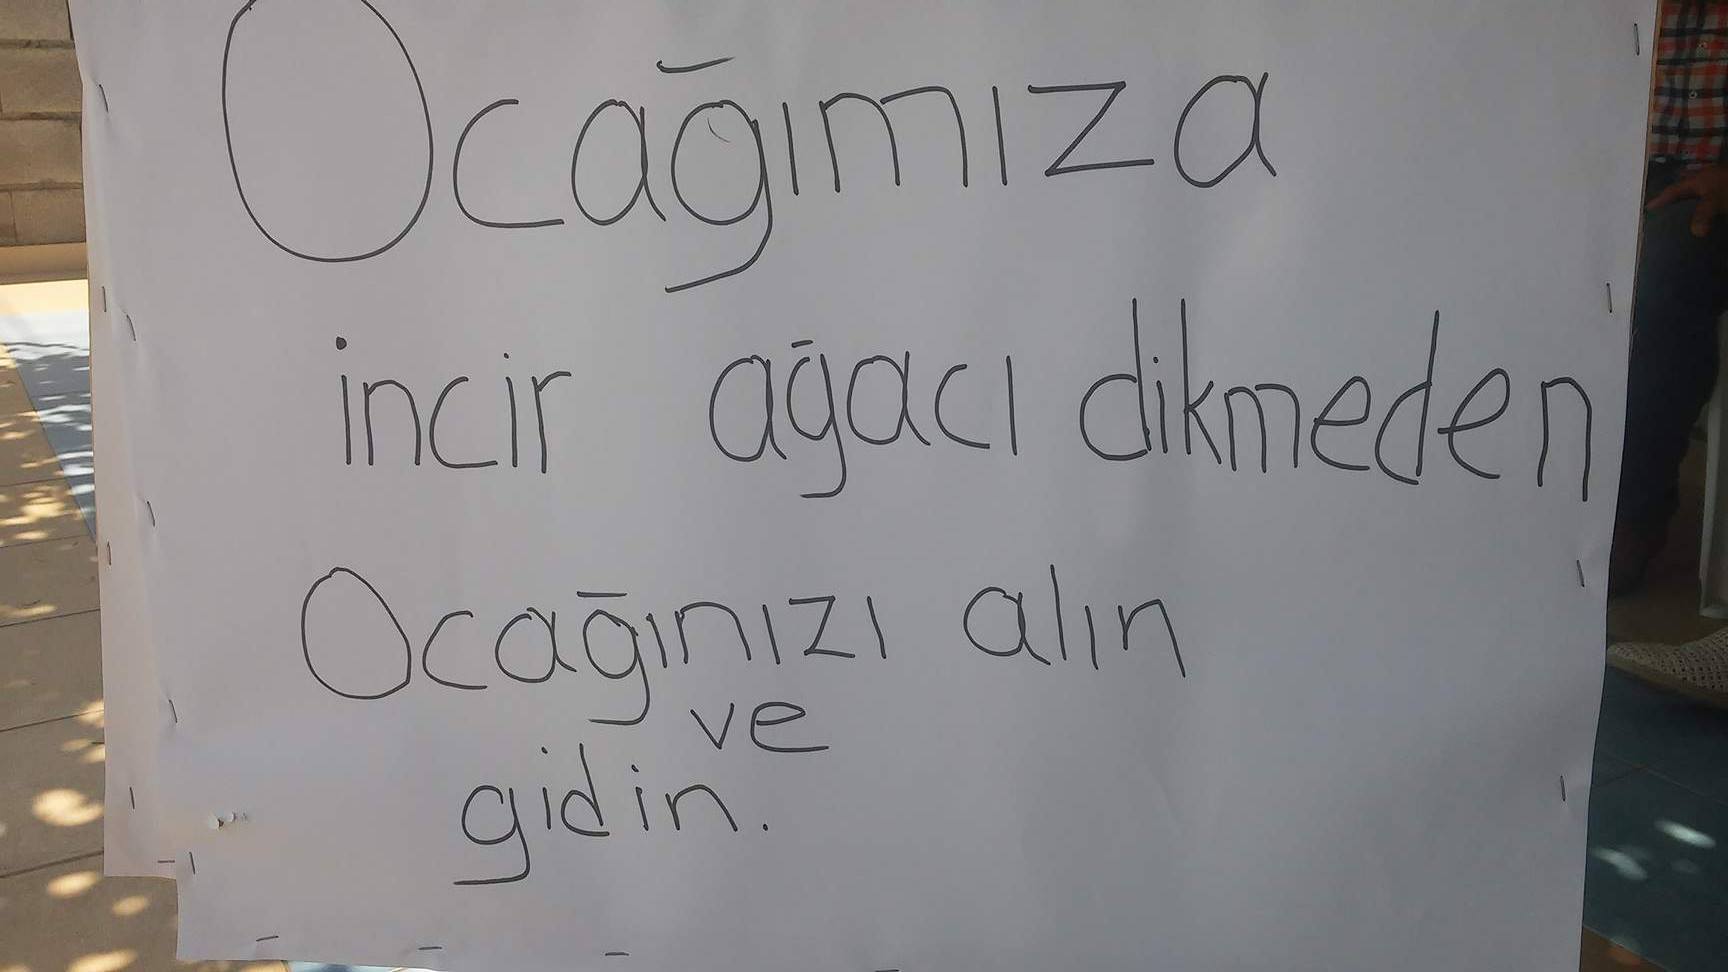 Ocağımıza
incir ağacı dikmeden
Ocağınızı alın
ve
gidin.